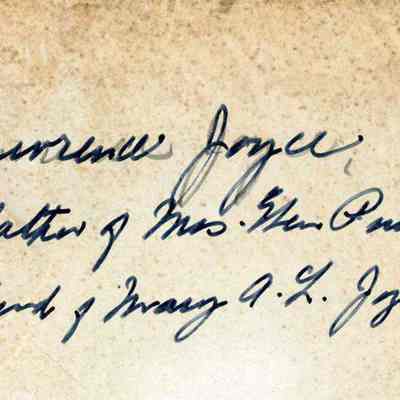 awrence Joyce,
ather of Mrs. Eben
and of Mary A. L. Joy